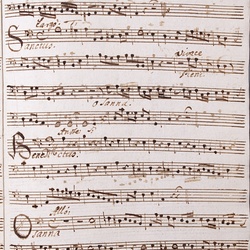 Largo
Sanctus
Vivace
Pleni
Osanna
Andte
Benedictus
Allo
Osanna